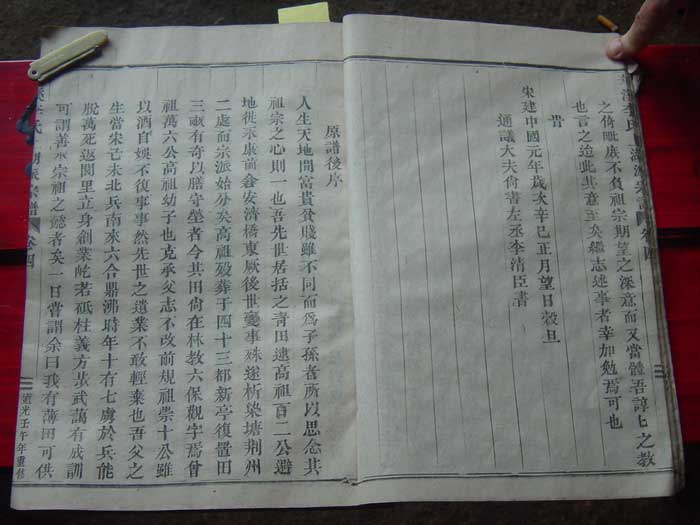 之倚毗庶不負祖宗期望之深意而又當體吾諄匕之教
也言之迨此其意至矣繼志述事者幸加勉焉可也
旹
宋建中國元年歲次辛巳正月望日穀旦
通議大夫尚書左丞李清臣書
原譜後序
人生天地間富貴貧賤雖不同而為子孫者所以思念其
祖宗之心則一也吾先世居括之青田逮高祖百二公避
地徙永康前倉安濟橋東厥後世變事殊遂析梁塘荆州
二處而宗派始分矣高祖歿葬于四十三都新亭復置田
三畝有奇以膳守塋者今其田尚在林教六保觀字焉曾
祖萬六公高祖幼子也克承父志不改前規祖崇十公雖
以酒自娛不復事事然先世之遺業不敢輕棄也吾父之
生當宋亡末北兵南來六合鼎沸時年十有七虜於兵能
脫萬死返閭里立身創業屹若砥柱義方是武藹有成訓
可謂善承宗祖之懿者矣一日嘗謂余曰我有薄田可供
宗譜
卷四
道光壬午年重修